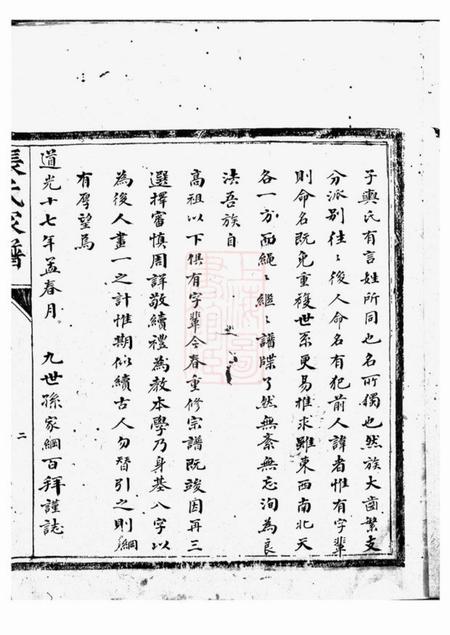 子輿氏有言姓所同也名所獨也然族大齒繁支
分派别往〻後人命名有犯前人諱者惟有字輩
則命名既免重複世系更易推求雖東西南北天
各一方而繩〻繼〻譜牒了然無紊無忘洵為良
法吾族自
高祖以下俱有字輩今春重修宗譜既竣因再三
選擇審慎周詳敬續禮為教本學乃身基八字以
為後人畫一之計惟期似續古人勿替引之則綱
有厚望焉
道光十七年孟春月 九世孫家綱百拜謹誌
張氏家譜
二